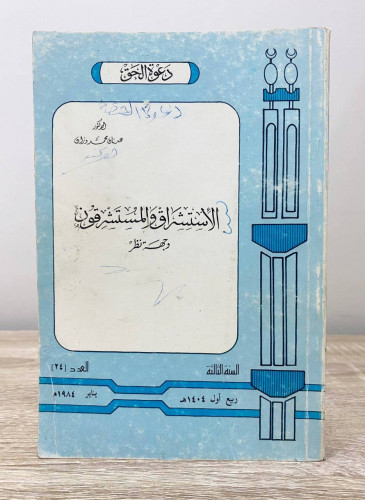 دعوة الحق
الدكتور
عدنان محمد وزان
الاستشراق والمستشرقون
وجهة نظر
السنة الثالثة
العدد (٢٤)
ربيع أول ١٤٠٤هـ
يناير ١٩٨٤م